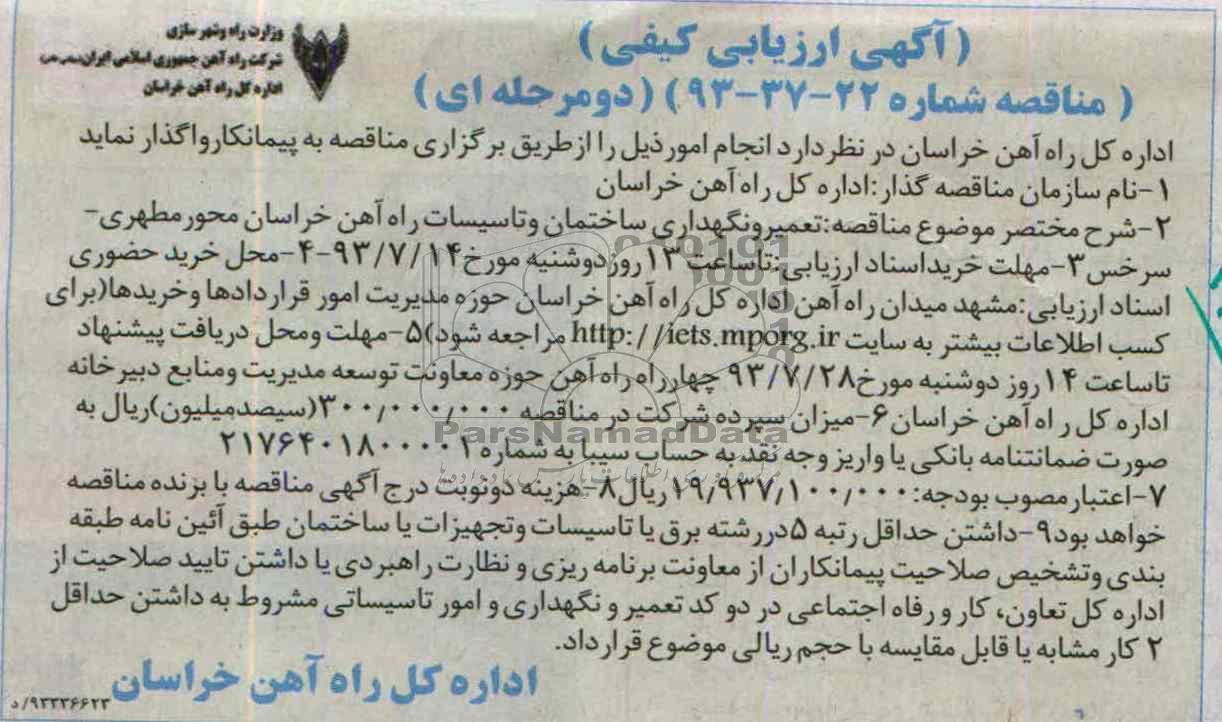 وزارت راه وشهرسازی
شرکت راه آهن جمهوری اسلامی ایران
اداره کل راه آهن خراسان
(آگهی ارزیابی کیفی)
(مناقصه شماره ۲۲-۳۷-۹۳) (دومرحله ای)
اداره کل راه آهن خراسان در نظردارد انجام امورذیل را ازطریق برگزاری مناقصه به پیمانکارواگذار نماید
۱-نام سازمان مناقصه گذار:اداره کل راه آهن خراسان
۲-شرح مختصر موضوع مناقصه:تعمیرونگهداری ساختمان وتاسیسات راه آهن خراسان محورمطهری-
سرخس۳-مهلت خریداسناد ارزیابی:تاساعت ۱۳روزدوشنبه مورخ۹۳/۷/۱۴-۴-محل خرید حضوری
اسناد ارزیابی:مشهد میدان راه آهن اداره کل راه آهن خراسان حوزه مدیریت امور قراردادها وخریدها(برای
کسب اطلاعات بیشتر به سایت http://iets.mporg.ir مراجعه شود)۵-مهلت ومحل دریافت پیشنهاد
تاساعت ۱۴روز دوشنبه مورخ۹۳/۷/۲۸ چهارراه راه آهن حوزه معاونت توسعه مدیریت ومنابع دبیرخانه
اداره کل راه آهن خراسان۶-میزان سپرده شرکت در مناقصه ۳۰۰/۰۰۰/۰۰۰(سیصدمیلیون)ریال به
صورت ضمانتنامه بانکی یا واریز وجه نقد به حساب سیبا به شماره ۲۱۷۶۴۰۱۸۰۰۰۰۱
۷-اعتبارمصوب بودجه:۱۹/۹۳۷/۱۰۰/۰۰۰ریال۸-هزینه دونوبت درج آگهی مناقصه با برنده مناقصه
خواهد بود۹-داشتن حداقل رتبه ۵دررشته برق یا تاسیسات وتجهیزات یا ساختمان طبق آئین نامه طبقه
بندی وتشخیص صلاحیت پیمانکاران از معاونت برنامه ریزی و نظارت راهبردی یا داشتن تایید صلاحیت از
اداره کل تعاون، کار و رفاه اجتماعی در دو کد تعمیر و نگهداری و امور تاسیساتی مشروط به داشتن حداقل
۲ کار مشابه یا قابل مقایسه با حجم ریالی موضوع قرارداد.
اداره کل راه آهن خراسان
۹۳۳۳۶۶۲۳/د
ParsNamadData